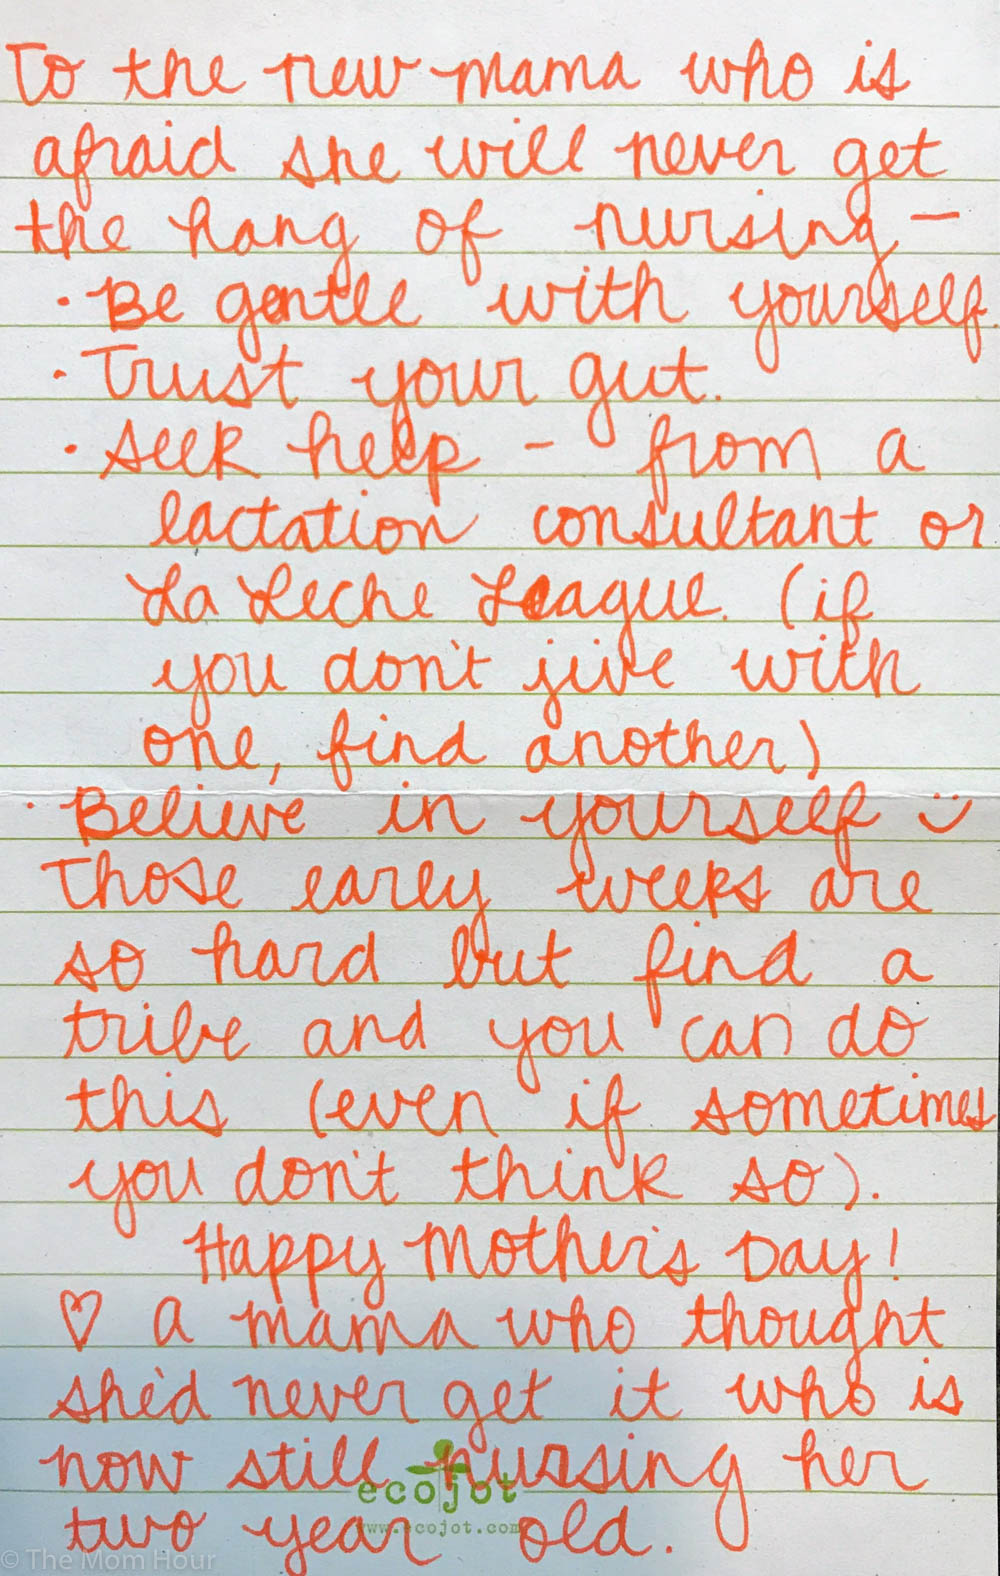 To the new mama who is
afraid she will never get
the hang of nursing –
· Be gentle with yourself.
· Trust your gut.
· seek help – from a
lactation consultant or
La Leche League. (if
you don't jive with
one, find another)
· Believe in yourself :)
Those early weeks are
so hard but find a
tribe and you can do
this (even if sometimes
you don't think so).
Happy Mother's Day!
♡ a mama who thought
she'd never get it who is
now still nursing her
ecojot
two year old.
www.ecojot.com
© The Mom Hour